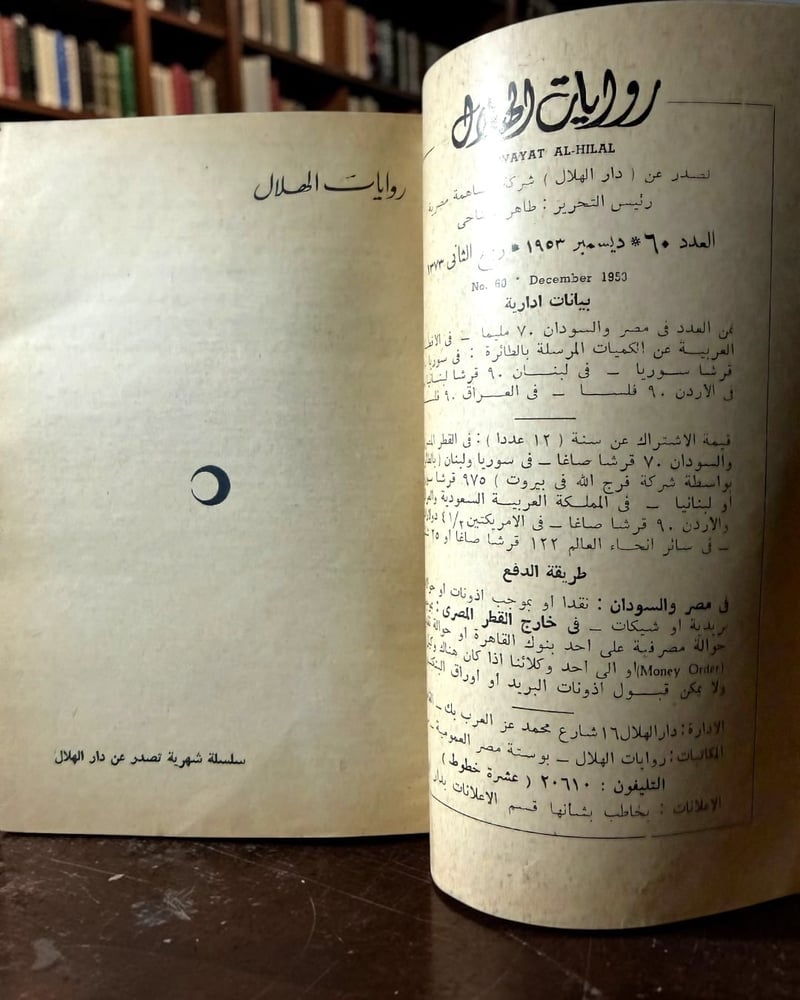 روايات الهلال
سلسلة شهرية تصدر عن دار الهلال
روايات الهلال
AL-HILAL
تصدر عن ( دار الهلال ) شركة مساهمة مصرية
رئيس التحرير : طاهر
العدد ٦٠ * ديسمبر ١٩٥٣ * ربيع الثانى ١٣٧٣
No. 60 * December 1953
بيانات ادارية
ثمن العدد فى مصر والسودان ٧٠ مليما ــ فى
العربية عن الكميات المرسلة بالطائرة : فى سوريا
قرشا سوريا ــ فى لبنان ٩٠ قرشا لبنانيا
فى الاردن ٩٠ فلسا ــ فى العراق ٩٠
قيمة الاشتراك عن سنة ( ١٢ عددا ) : فى القطر
والسودان ٧٠ قرشا صاغا ــ فى سوريا ولبنان
بواسطة شركة فرج الله فى بيروت ) ٩٧٥ قرشا
او لبنانيا ــ فى المملكة العربية السعودية
والاردن ٩٠ قرشا صاغا ــ فى الامريكتين ٤١/٢
ــ فى سائر انحاء العالم ١٢٢ قرشا صاغا او
طريقة الدفع
فى مصر والسودان : نقدا او بموجب اذونات او
بريدية او شيكات ــ فى خارج القطر المصرى :
حوالة مصرفية على احد بنوك القاهرة او حوالة
(Money Order) او الى احد وكلائنا اذا كان هناك
ولا يمكن قبول اذونات البريد او اوراق
الادارة : دار الهلال ١٦ شارع محمد عز العرب بك ــ
المكاتبات : روايات الهلال ــ بوستة مصر العمومية ــ
التليفون : ٢٠٦١٠ ( عشرة خطوط )
الاعلانات : يخاطب بشأنها قسم الاعلانات بدار